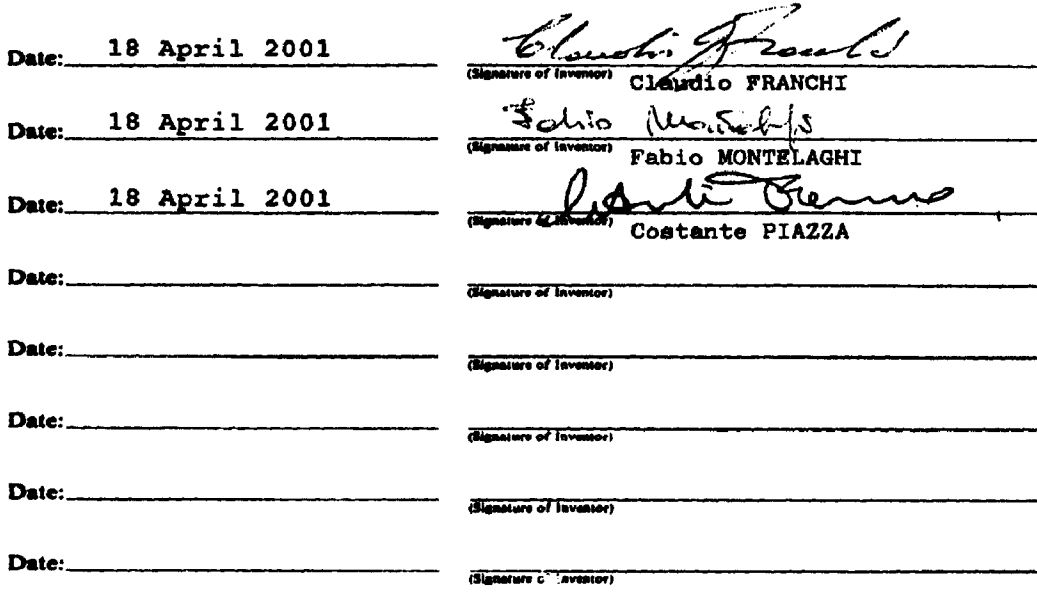 Date: 18 April 2001 Claudio Franchi
(Signature of Inventor) Claudio FRANCHI
Date: 18 April 2001 Fabio
(Signature of Inventor) Fabio MONTELAGHI
Date: 18 April 2001
(Signature of Inventor) Costante PIAZZA
Date:
(Signature of Inventor)
Date:
(Signature of Inventor)
Date:
(Signature of Inventor)
Date:
(Signature of Inventor)
Date:
(Signature of Inventor)